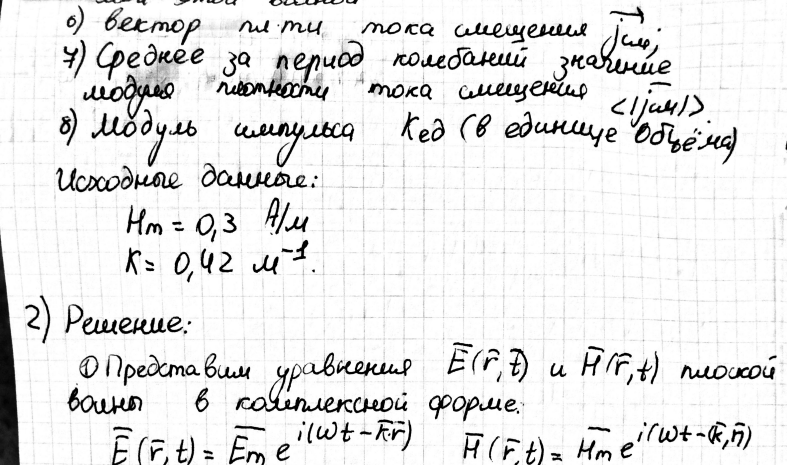 6) вектор пл-ти тока смещения jсм;
7) Среднее за период колебаний значение
модуля плотности тока смещения <|jсм|>.
8) Модуль импульса Kед (в единице объёма)
Исходные данные:
Hm = 0,3 А/м
K = 0,42 м⁻¹.
2) Решение:
① Представим уравнения E̅(r̅,t) и H̅(r̅,t) плоской
волны в комплексной форме.
E̅(r̅,t) = E̅m e^i(ωt-k̅r̅) H̅(r̅,t) = H̅m e^i(ωt-(k̅,r̅))